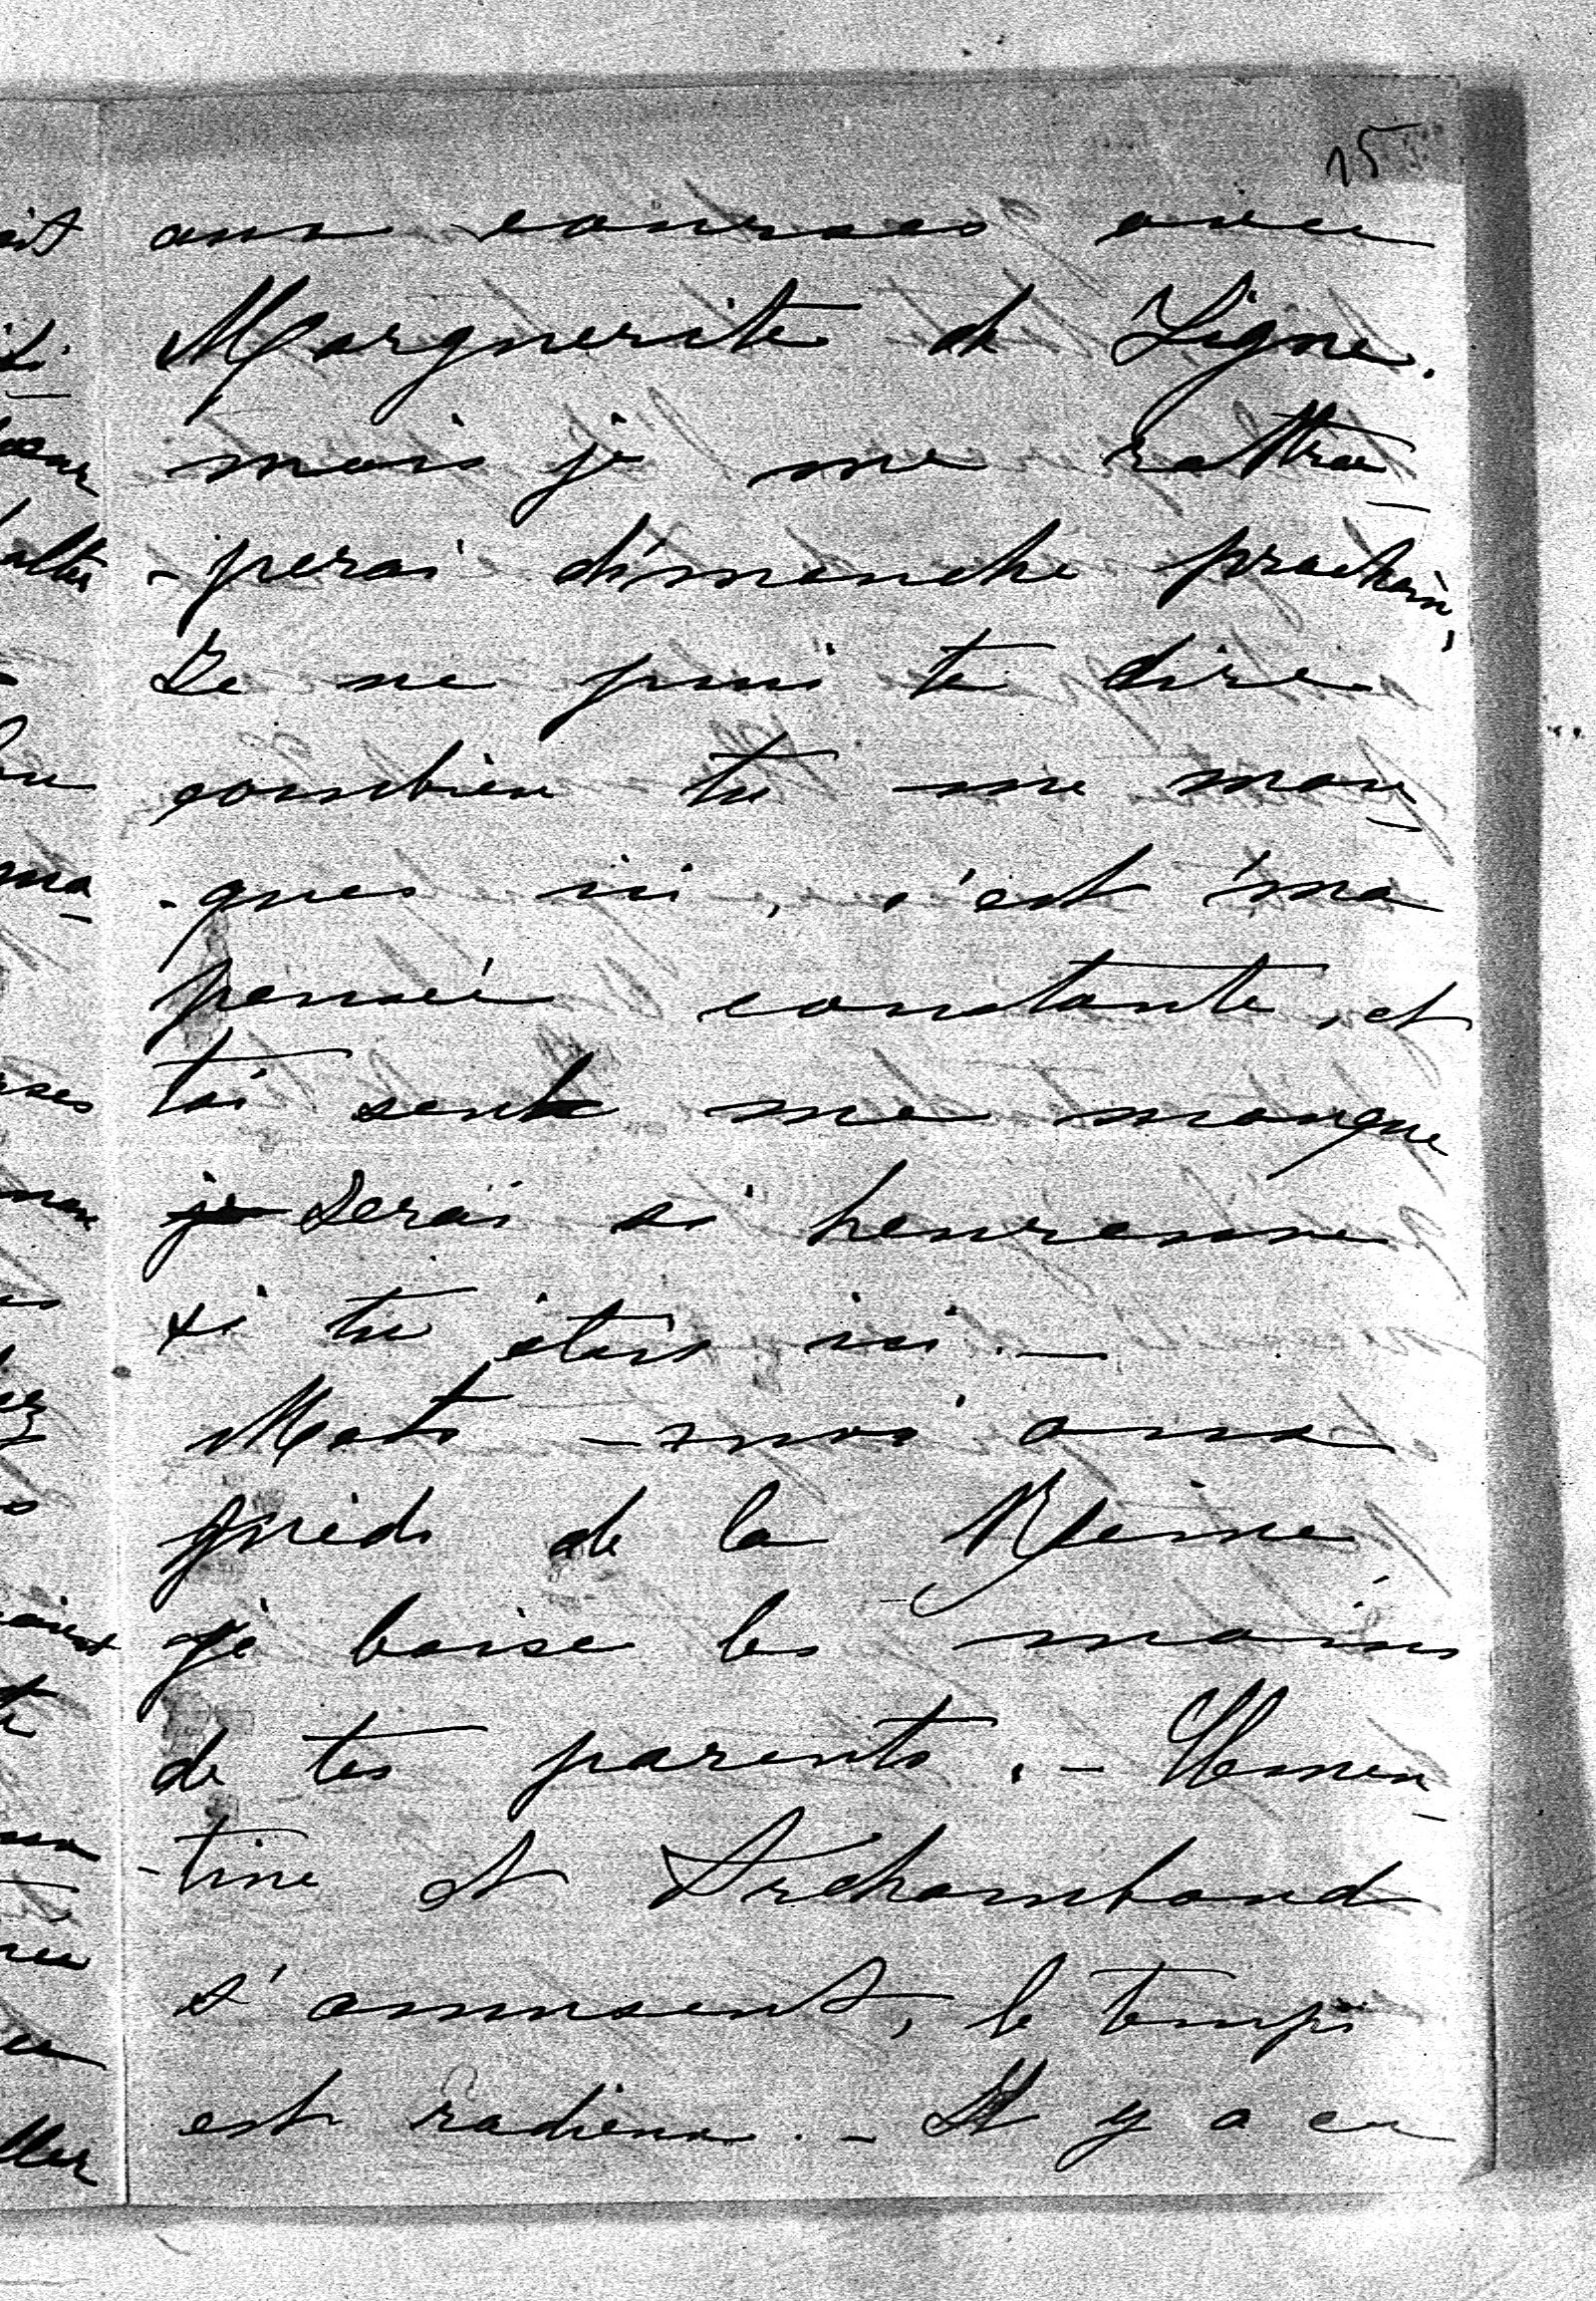 15
aux courses avec
Marguerite de Ligne.
mais je me rattra-
-perai dimanche prochain,
Je ne puis te dire
combien tu me man-
-ques ici, c'est ma
pensée constante, et
toi seule me manque
je serai si heureuse
si tu étais ici. —
Mets-moi aux
pieds de la Reine
je baise les mains
de tes parents. — Clémen-
-tine et Archambaud
s'amusent, le temps
est radieux. — Il y a eu